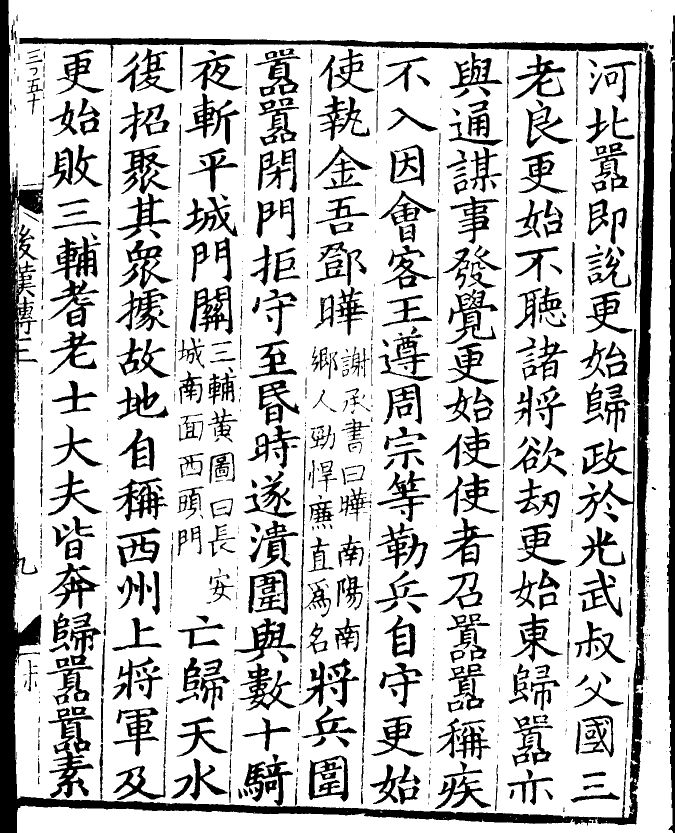 河北囂即說更始歸政於光武叔父國三
老良更始不聽諸將欲劫更始東歸囂亦
與通謀事發覺更始使使者召囂囂稱疾
不入因會客王遵周宗等勒兵自守更始
使執金吾鄧曄謝承書曰曄南陽南鄉人勁悍廉直爲名將兵圍
囂囂閉門拒守至昏時遂潰圍與數十騎
夜斬平城門關三輔黃圖曰長安城南面西頭門亡歸天水
復招聚其衆據故地自稱西州上將軍及
更始敗三輔耆老士大夫皆奔歸囂囂素
後漢傳三
九